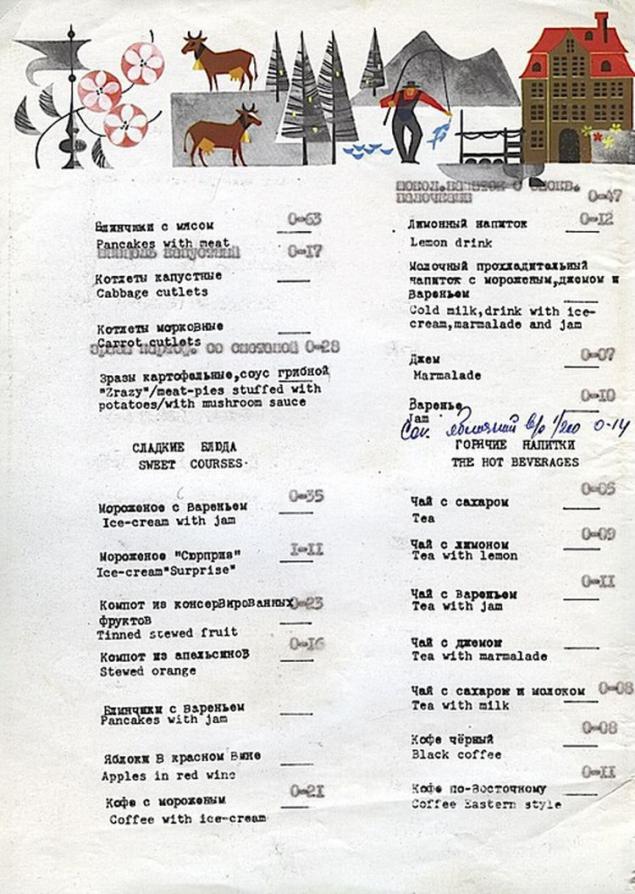 0-63
Блинчики с мясом
Pancakes with meat
0-17
Котлеты капустные
Cabbage cutlets
Котлеты морковные
Carrot cutlets
со сметаной 0-28
Зразы картофельные,соус грибной
"Zrazy"/meat-pies stuffed with
potatoes/with mushroom sauce
СЛАДКИЕ БЛЮДА
SWEET COURSES
0-35
Мороженое с вареньем
Ice-cream with jam
Мороженое "Сюрприз" 1-11
Ice-cream"Surprise"
Компот из консервированных 0-23
фруктов
Tinned stewed fruit
0-16
Компот из апельсинов
Stewed orange
Блинчики с вареньем
Pancakes with jam
Яблоки в красном вине
Apples in red wine
0-21
Кофе с мороженым
Coffee with ice-cream
0-47
Лимонный напиток 0-12
Lemon drink
Молочный прохладительный
напиток с мороженым,джемом и
вареньем
Cold milk,drink with ice-
cream,marmalade and jam
Джем 0-07
Marmalade
0-10
Варенье
Jam
Сок яблочный 0-14
ГОРЯЧИЕ НАПИТКИ
THE HOT BEVERAGES
0-05
Чай с сахаром
Tea
0-09
Чай с лимоном
Tea with lemon
0-11
Чай с вареньем
Tea with jam
Чай с джемом
Tea with marmalade
Чай с сахаром и молоком 0-08
Tea with milk
0-08
Кофе чёрный
Black coffee
0-11
Кофе по-восточному
Coffee Eastern style